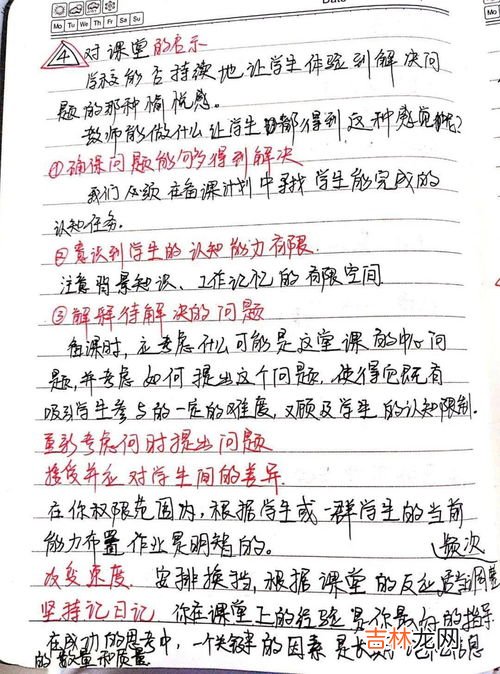 Date
Mo Tu We Th Fr Sa Su
4 对课堂的启示
学校能否持续地让学生体验到解决问
题的那种愉悦感。
教师能做什么让学生都得到这种感觉呢?
①确保问题能够得到解决
我们必须在备课计划中寻找学生能完成的
认知任务。
②意识到学生的认知能力有限.
注意背景知识、工作记忆的有限空间
③解释待解决的问题
备课时,应考虑什么可能是这堂课的中心问
题,并考虑如何提出这个问题,使得它既有
吸引学生参与的一定的难度,又顾及学生的认知限制.
重新考虑何时提出问题
接受并应对学生间的差异.
在你权限范围内,根据学生或一群学生的当前
能力布置作业是明智的。
频次
改变速度. 安排换挡,根据课堂的反应
坚持记日记 你在课堂上的经验是你最好的指导
在成功的思考中,一个关键的因素是
的数量和质量
吉林龙网